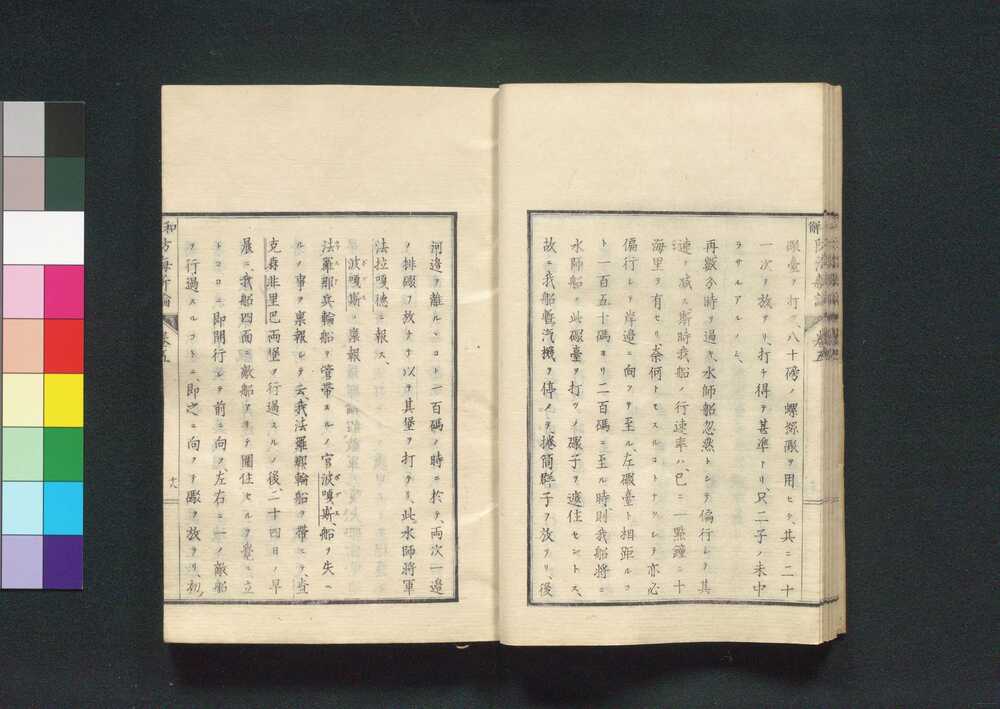 礮臺ヲ打ツ、八十磅ノ螺絲礮ヲ用ヒテ、其ニ二十
一次ヲ放ツリ、打チ得テ甚準トリ、只、二子ノ未中
ラサルアルノミ、
再數分時ヲ過キ、水師船忽然トシテ偏行シテ其
速ヲ減ス、斯時我船ノ行速率ハ、已ニ一點鐘ニ十
海里ヲ有セリ、奈何トモスルコトナクシテ亦必
偏行シテ岸邊ニ向フテ至ル、左礮臺ト相距ルコ
ト一百五十碼ヨリ二百碼ニ至ル時則我船將ニ
水師船ノ此礮臺ヲ打ツノ礮子ヲ遮住セントス、
故ニ我船暫汽機ヲ停メテ、
子ヲ放ツリ、後
河邊ヲ離ルヽコト一百碼ノ時ニ於テ、兩次一邉
ノ排礮ヲ放ナチ以テ其堡ヲ打テリ、此水師將軍
法拉嘎德ニ報ス、
波嘎斯ノ稟報
法羅那兵輪船ヲ管帶スルノ官波嘎斯、船ヲ失
ルノ事ヲ稟報シテ云、我法羅那輪船ヲ帶ニテ、查
克森非里巴両堡ヲ行過スルノ後、二十四日ノ早
晨ニ、我船四面ニ敵船アリテ圍住セルヲ覺ニ、立
トコロニ即開行シテ前ニ向フ、左右ニ一ノ敵船
ヲ行過スルコトニ、即之ニ向フテ礮ヲ放ツリ、初
卷五
十八